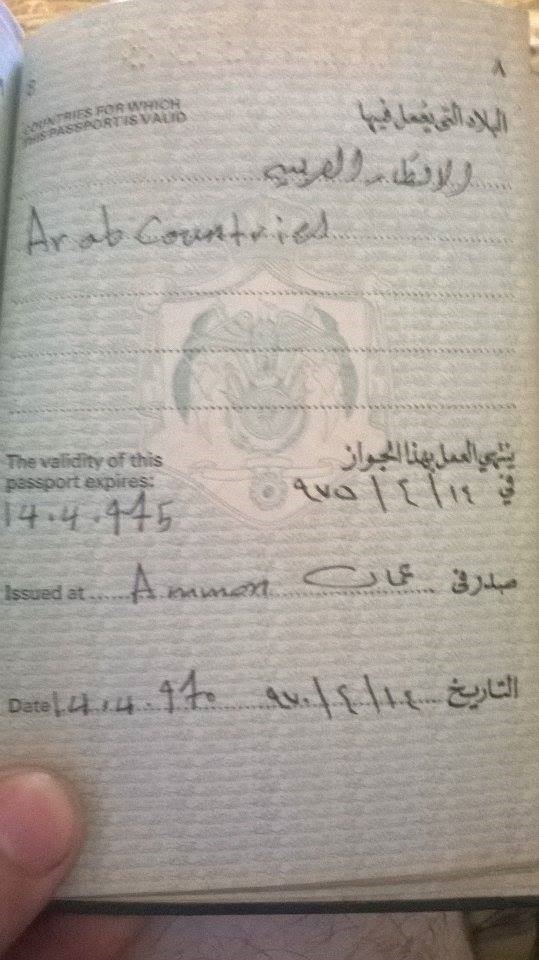 8 ٨
COUNTRIES FOR WHICH
THIS PASSPORT IS VALID
البلاد التي يعمل فيها
الاقطار العربيه
Arab Countries
The validity of this
passport expires:
14.4.975
ينتهي العمل بهذا الجواز
في ١٤/٤/٩٧٥
Issued at Amman عمان صدر في
Date 14.4.970 ٩٧٠/٤/١٤ التاريخ